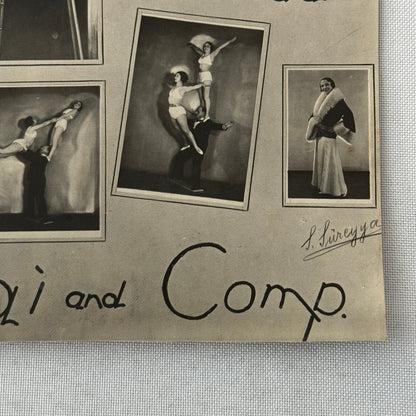 S. Süreyya
qi and Comp.